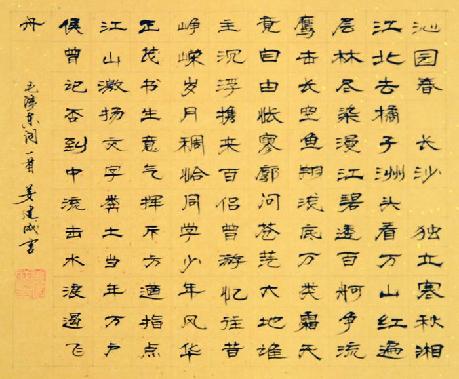 沁园春 长沙 独立寒秋湘
江北去橘子洲头看万山红遍
层林尽染漫江碧透百舸争流
鹰击长空鱼翔浅底万类霜天
竞自由怅寥廓问苍茫大地谁
主沉浮携来百侣曾游忆往昔
峥嵘岁月稠恰同学少年风华
正茂书生意气挥斥方遒指点
江山激扬文字粪土当年万户
侯曾记否到中流击水浪遏飞
舟
毛泽东词一首 姜建成书